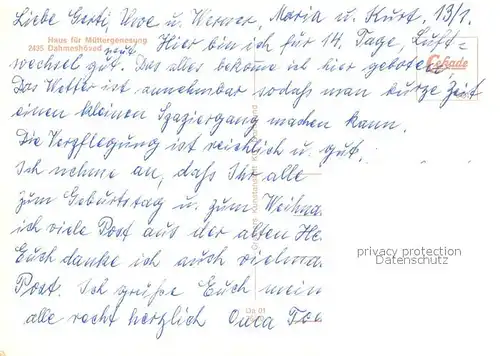 Liebe Gerti, Uwe u. Werner, Maria u. Kurt. 13/1.
Haus für Müttergenesung
2435 Dahmeshöved
Hier bin ich für 14 Tage, Luft=
wechsel gut. Das alles bekomme ich hier geboten,
Cekade
Das Wetter ist annehmbar sodaß man kurze Zeit
einen kleinen Spaziergang machen kann.
Die Verpflegung ist reichlich u. gut.
Ich nehme an, daß Ihr alle
zum Geburtstag u. zum Weihna
ich viele Post aus der alten He
Euch danke ich auch vielma
Post. Ich grüße Euch mein
alle recht herzlich
privacy protection
Datenschutz